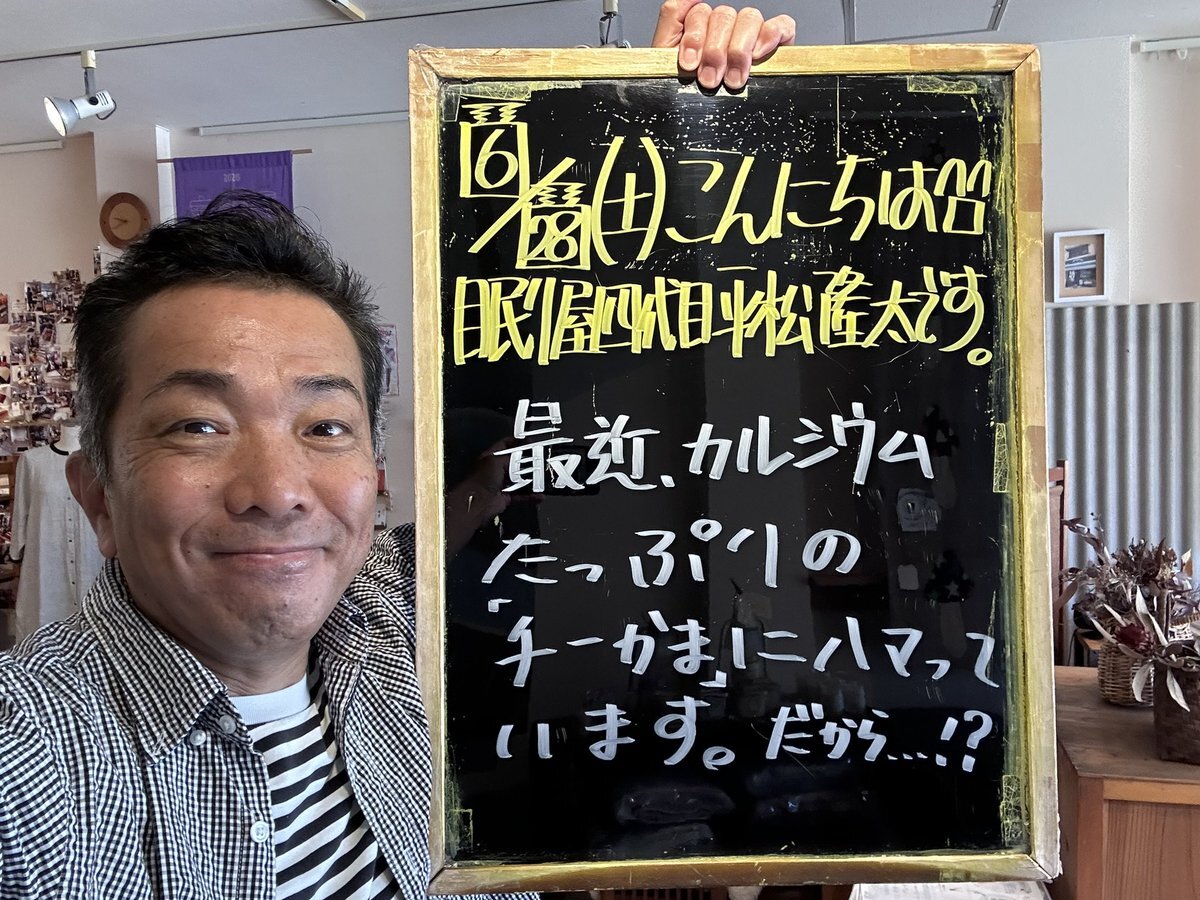 2020
6/28(土)こんにちは
眠り屋四代目平松隆太です。
最近、カルシウム
たっぷりの
「チーかま」にハマって
います。だから…!?